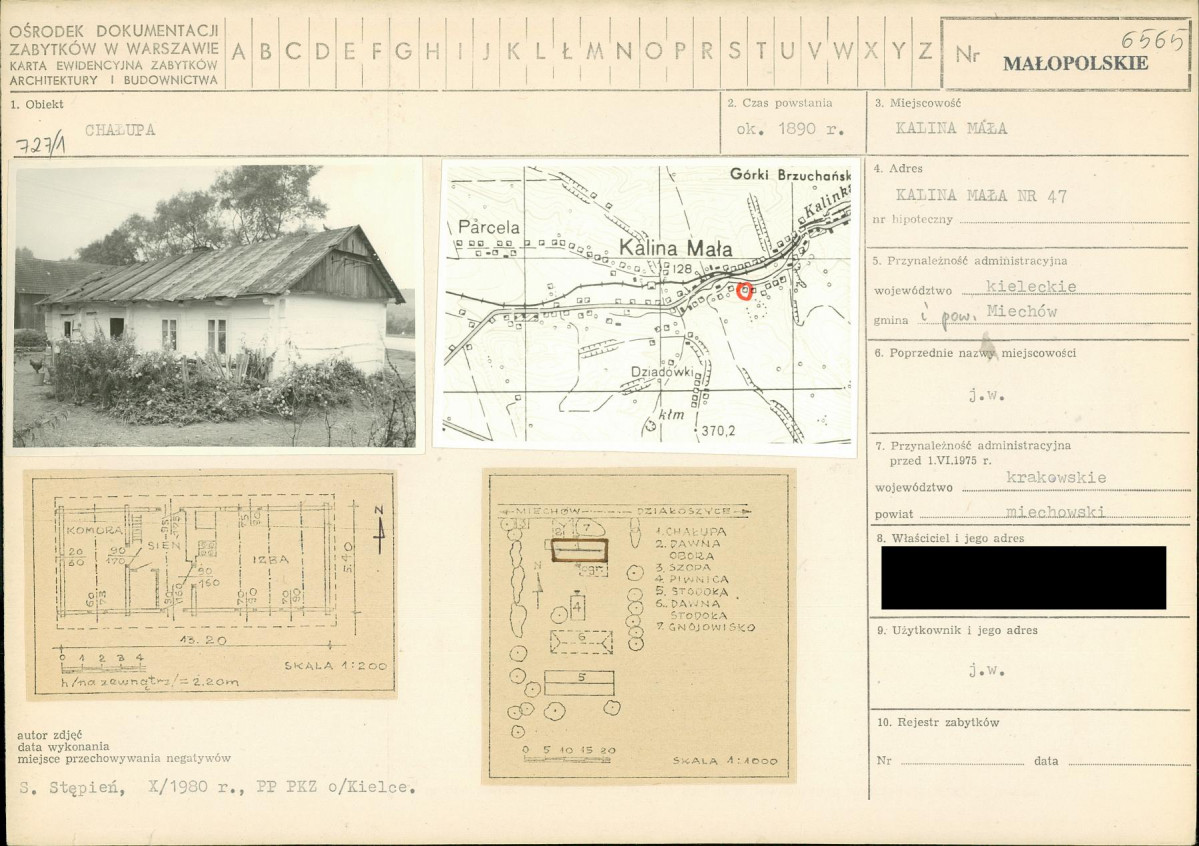 OŚRODEK DOKUMENTACJI
ZABYTKÓW W WARSZAWIE
KARTA EWIDENCYJNA ZABYTKÓW
ARCHITEKTURY I BUDOWNICTWA
A B C D E F G H I J K L Ł M N O P R S T U V W X Y Z
Nr
6565
MAŁOPOLSKIE
1. Obiekt
CHAŁUPA
727/1
2. Czas powstania
ok. 1890 r.
3. Miejscowość
KALINA MAŁA
4. Adres
KALINA MAŁA NR 47
nr hipoteczny
5. Przynależność administracyjna
województwo kieleckie
gmina i pow. Miechów
6. Poprzednie nazwy miejscowości
j.w.
7. Przynależność administracyjna
przed 1.VI.1975 r.
województwo krakowskie
powiat miechowski
8. Właściciel i jego adres
9. Użytkownik i jego adres
j.w.
10. Rejestr zabytków
Nr data
Górki Brzuchańsk
Kalinka
Parcela
Kalina Mała
128
Dziadówki
kłm
370,2
KOMORA
SIEŃ
IZBA
20
60
90
170
60
73
90
160
70
90
5.40
N
13.20
0 1 2 3 4
SKALA 1:200
h/na zewnątrz/= 2.20m
MIECHÓW DZIAŁOSZYCE
7
N
4
6
5
1. CHAŁUPA
2. DAWNA
OBORA
3. SZOPA
4. PIWNICA
5. STODOŁA
6. DAWNA
STODOŁA
7. GNOJOWISKO
0 5 10 15 20
SKALA 1:1000
autor zdjęć
data wykonania
miejsce przechowywania negatywów
S. Stępień, X/1980 r., PP PKZ o/Kielce.